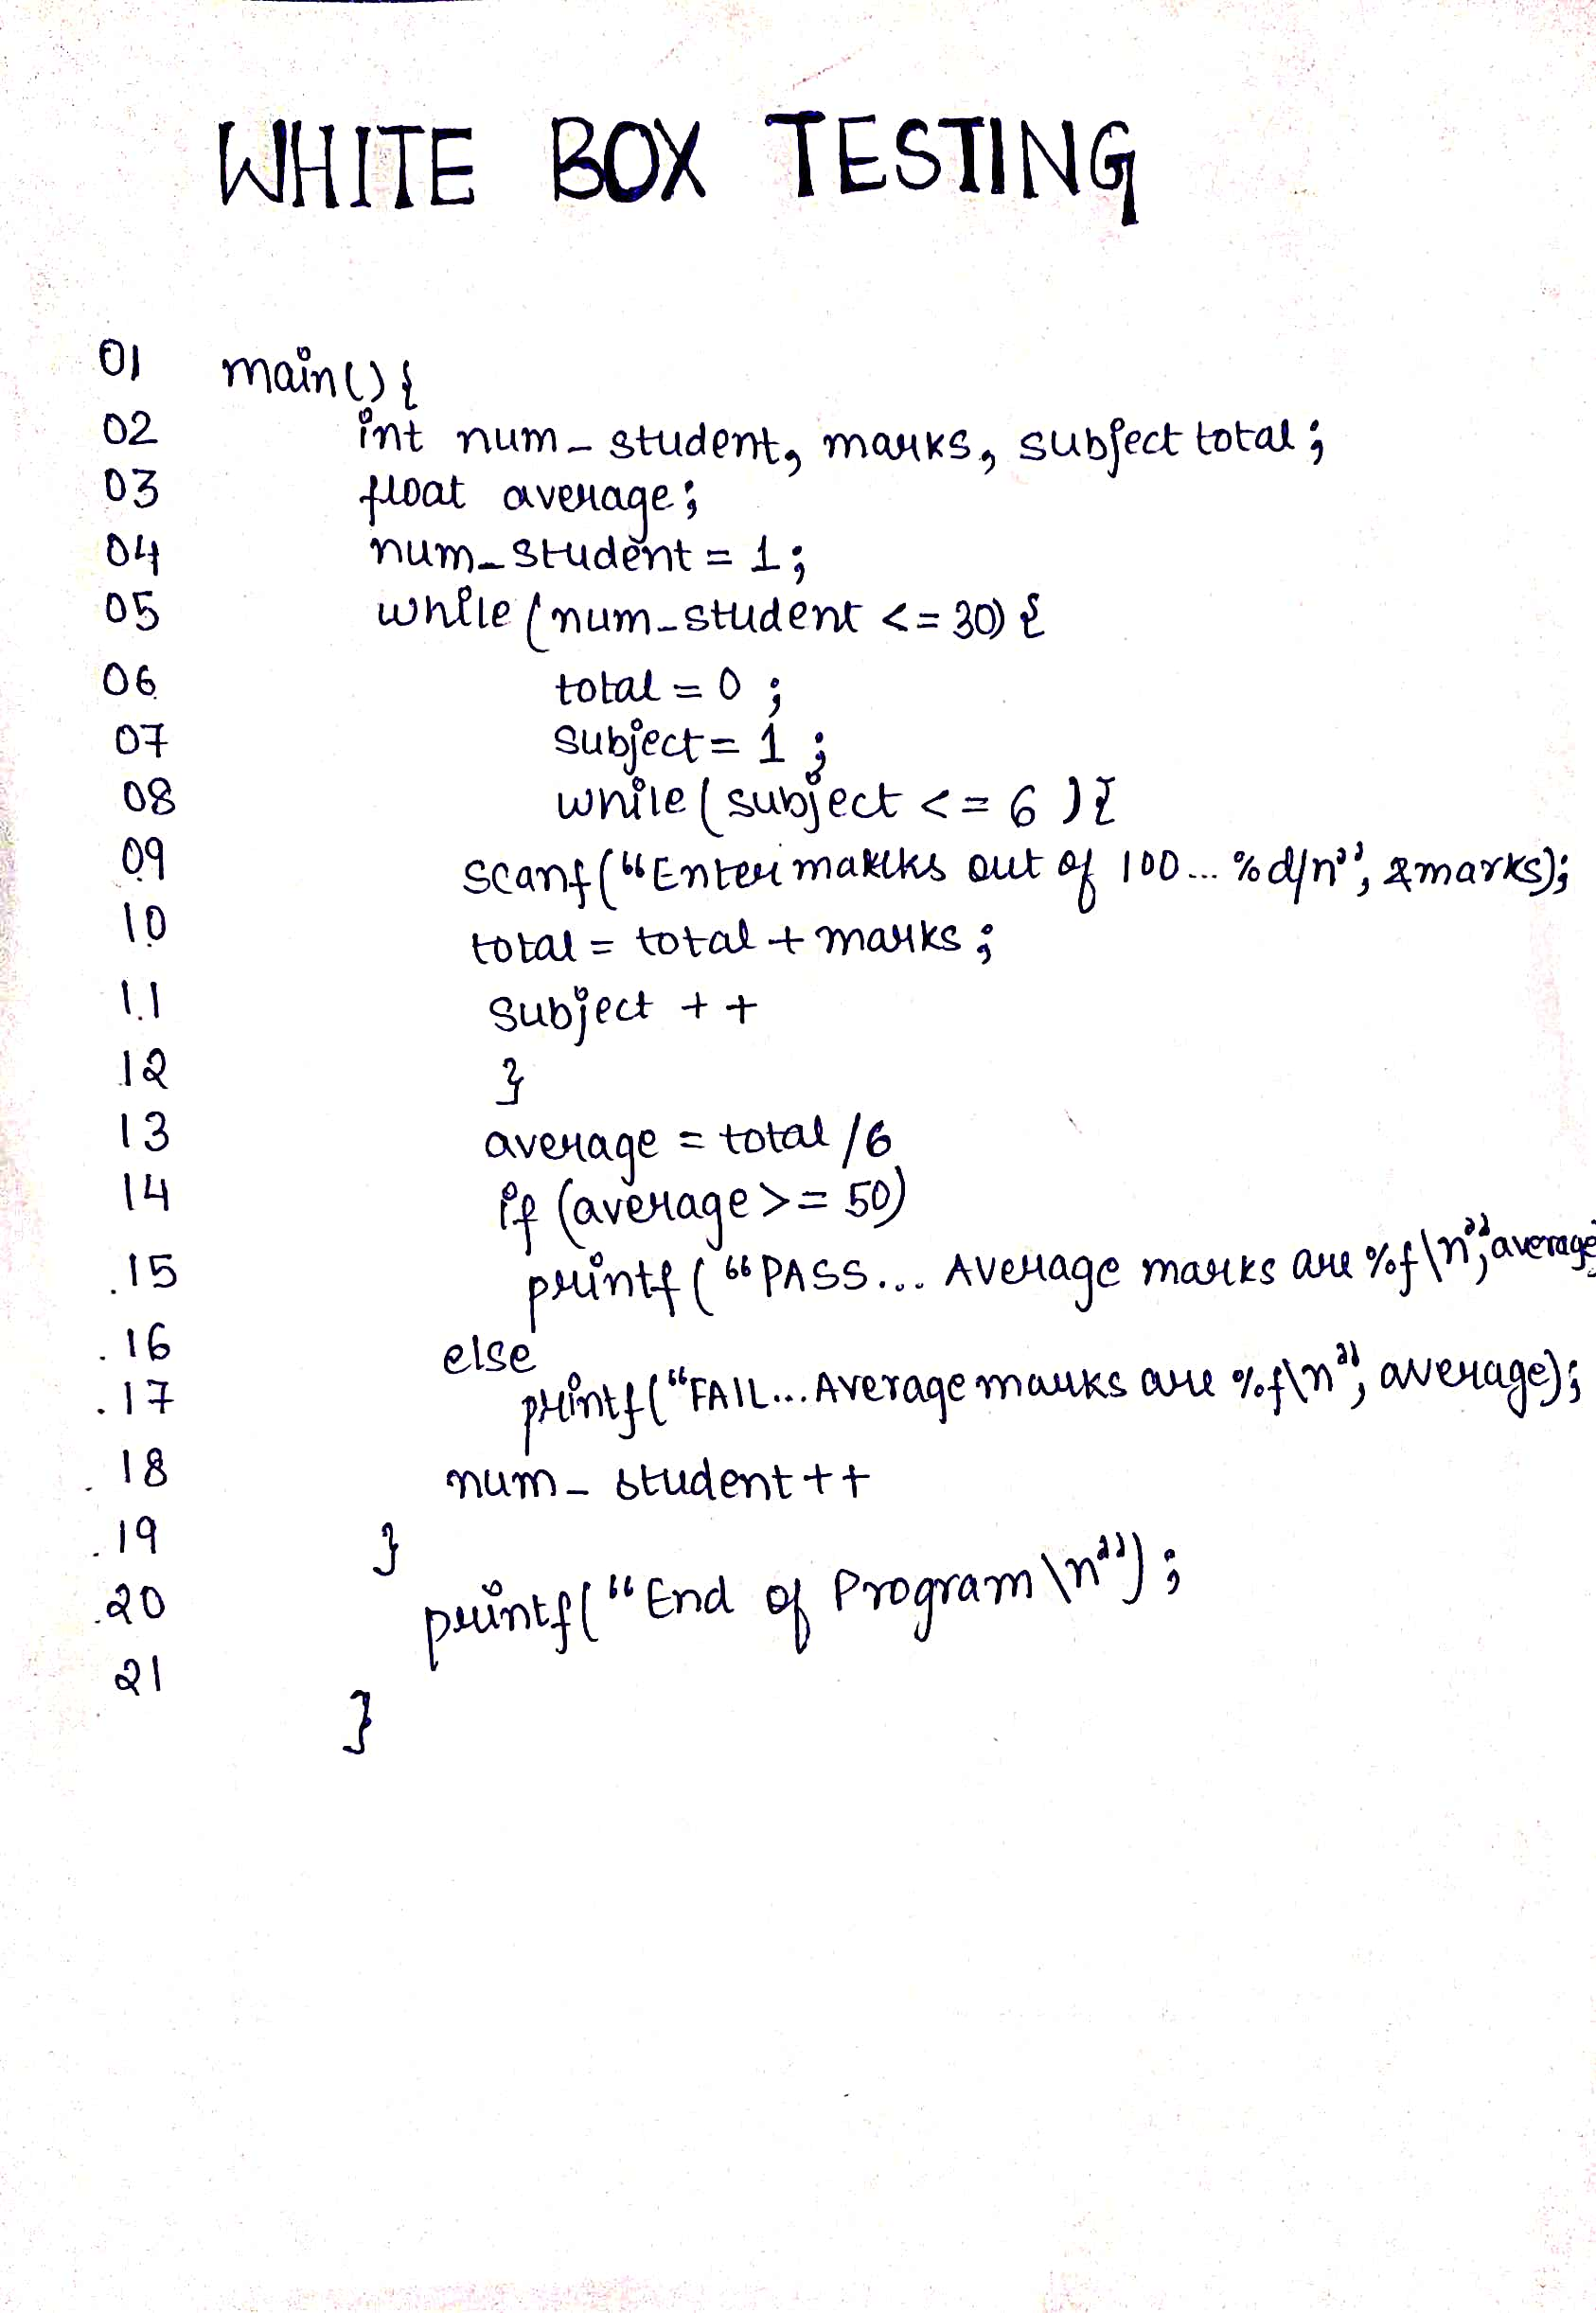 WHITE BOX TESTING
01 main() {
02 int num_student, marks, subject total;
03 float average;
04 num_student = 1;
05 while (num_student <= 30) {
06 total = 0 ;
07 subject = 1 ;
08 while ( subject <= 6 ) {
09 scanf ( "Enter marks out of 100... %d/n", &marks);
10 total = total + marks ;
11 subject ++
12 }
13 average = total /6
14 if (average >= 50)
15 printf ( "PASS... Average marks are %f \n", average
16 else
17 printf ("FAIL... Average marks are %f\n", average);
18 num_student ++
19 }
20 printf( "End of Program \n") ;
21 }